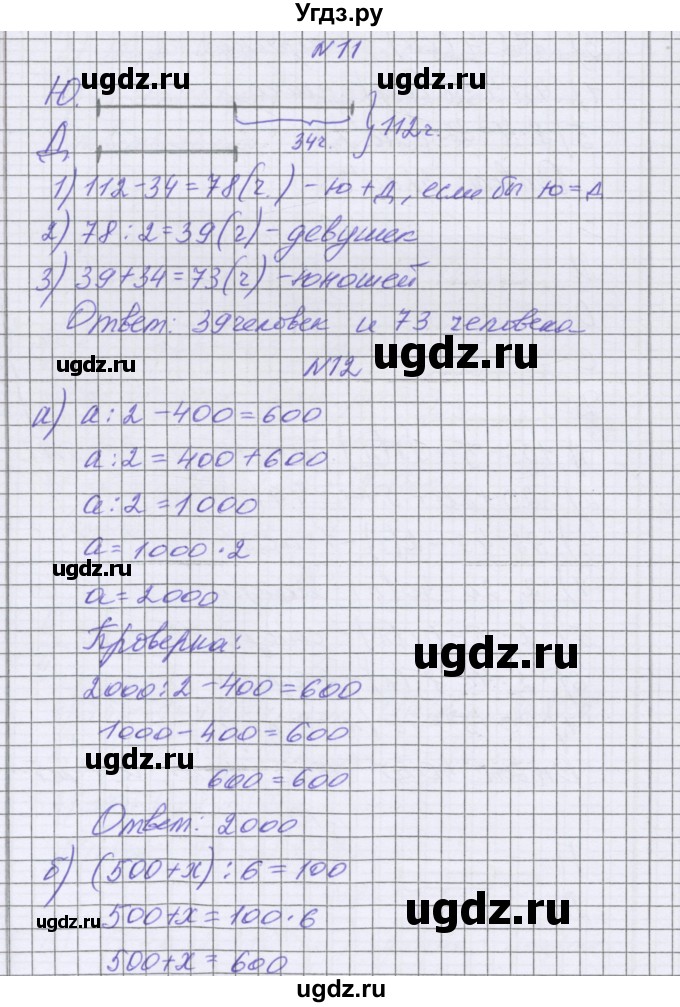 Угдз.ру
N11
ugdz.ru ugdz.ru
Ю.
34г. 112г.
Д
1) 112-34=78(г.) - ю+д, если бы ю=д
2) 78:2=39(г) - девушек
3) 39+34=73(г) - юношей
Ответ: 39человек и 73 человека
ugdz.ru N12 ugdz.ru
а) а:2-400=600
а:2=400+600
а:2=1000
а=1000·2
ugdz.ru
а=2000
Проверка:
ugdz.ru
2000:2-400=600
1000-400=600
ugdz.ru
600=600
Ответ: 2000
б) (500+x):6=100
ugdz.ru 500+x=100·6 ugdz.ru
500+x=600
ugdz.ru